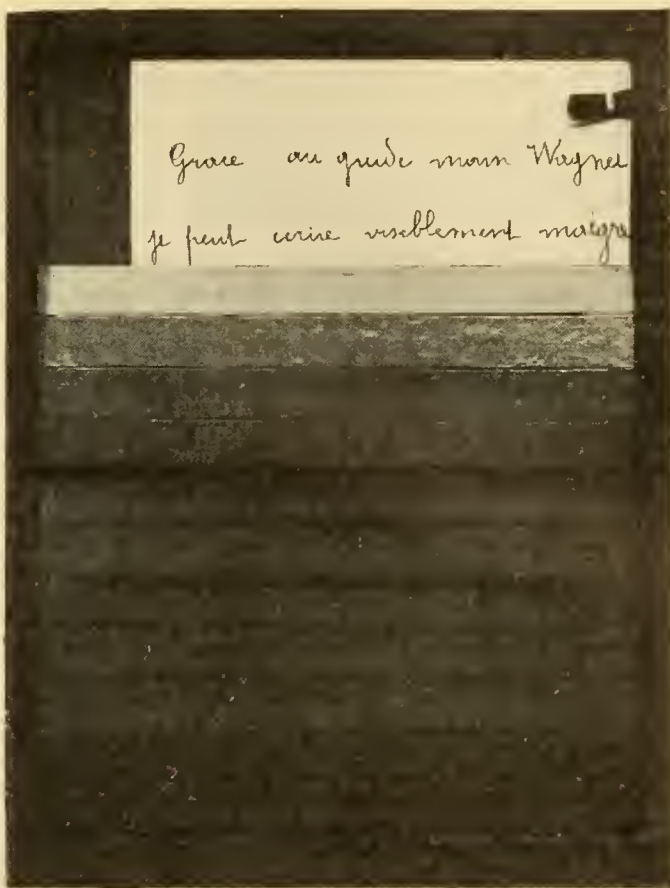 Grace au guide main Wagner
je peut ecrire visiblement malgre